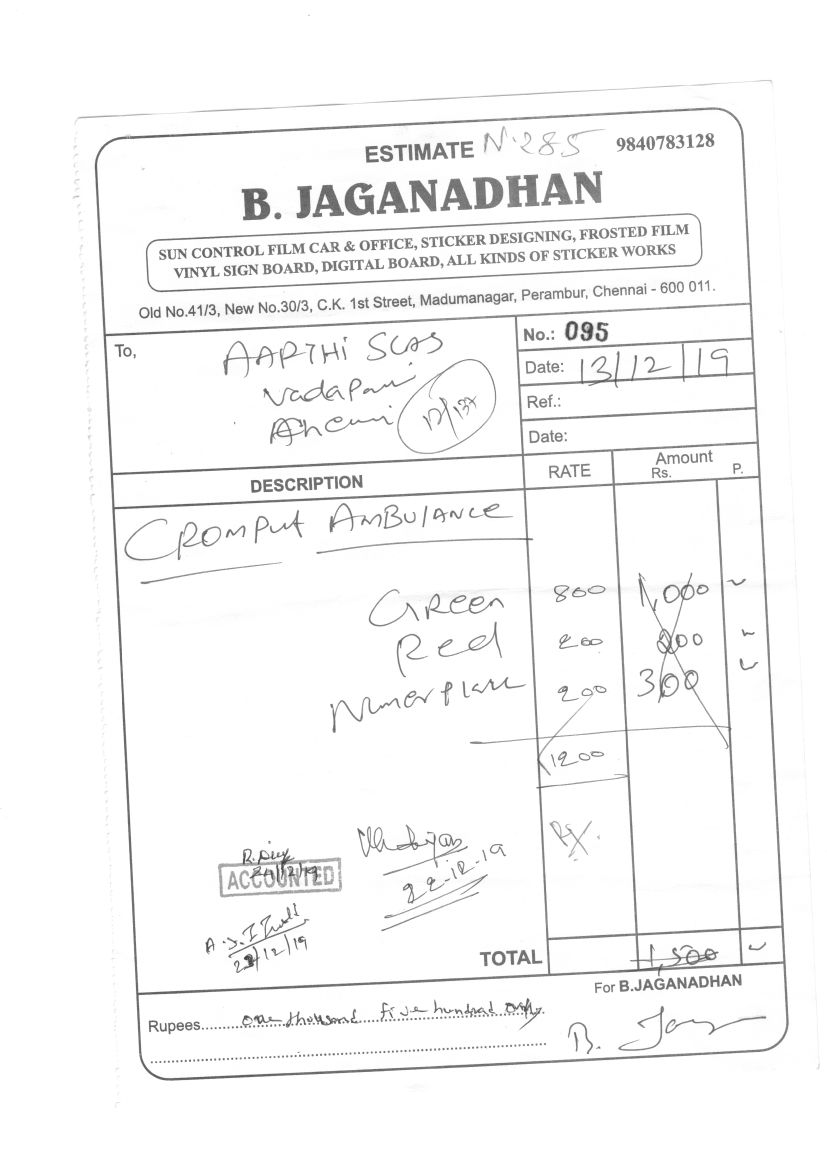 ESTIMATE N. 285 9840783128
B. JAGANADHAN
SUN CONTROL FILM CAR & OFFICE, STICKER DESIGNING, FROSTED FILM
VINYL SIGN BOARD, DIGITAL BOARD, ALL KINDS OF STICKER WORKS
Old No.41/3, New No.30/3, C.K. 1st Street, Madumanagar, Perambur, Chennai - 600 011.
To,
AARTHI SCAS
No.: 095
Date: 13/12/19
Ref.:
Date:
DESCRIPTION RATE Amount
Rs. P.
AMBULANCE
GREEN 800 1,000
Red 200 200
200 300
1200
22-12-19
ACCOUNTED
TOTAL 1,500
For B.JAGANADHAN
Rupees one thousand five hundred only
B.